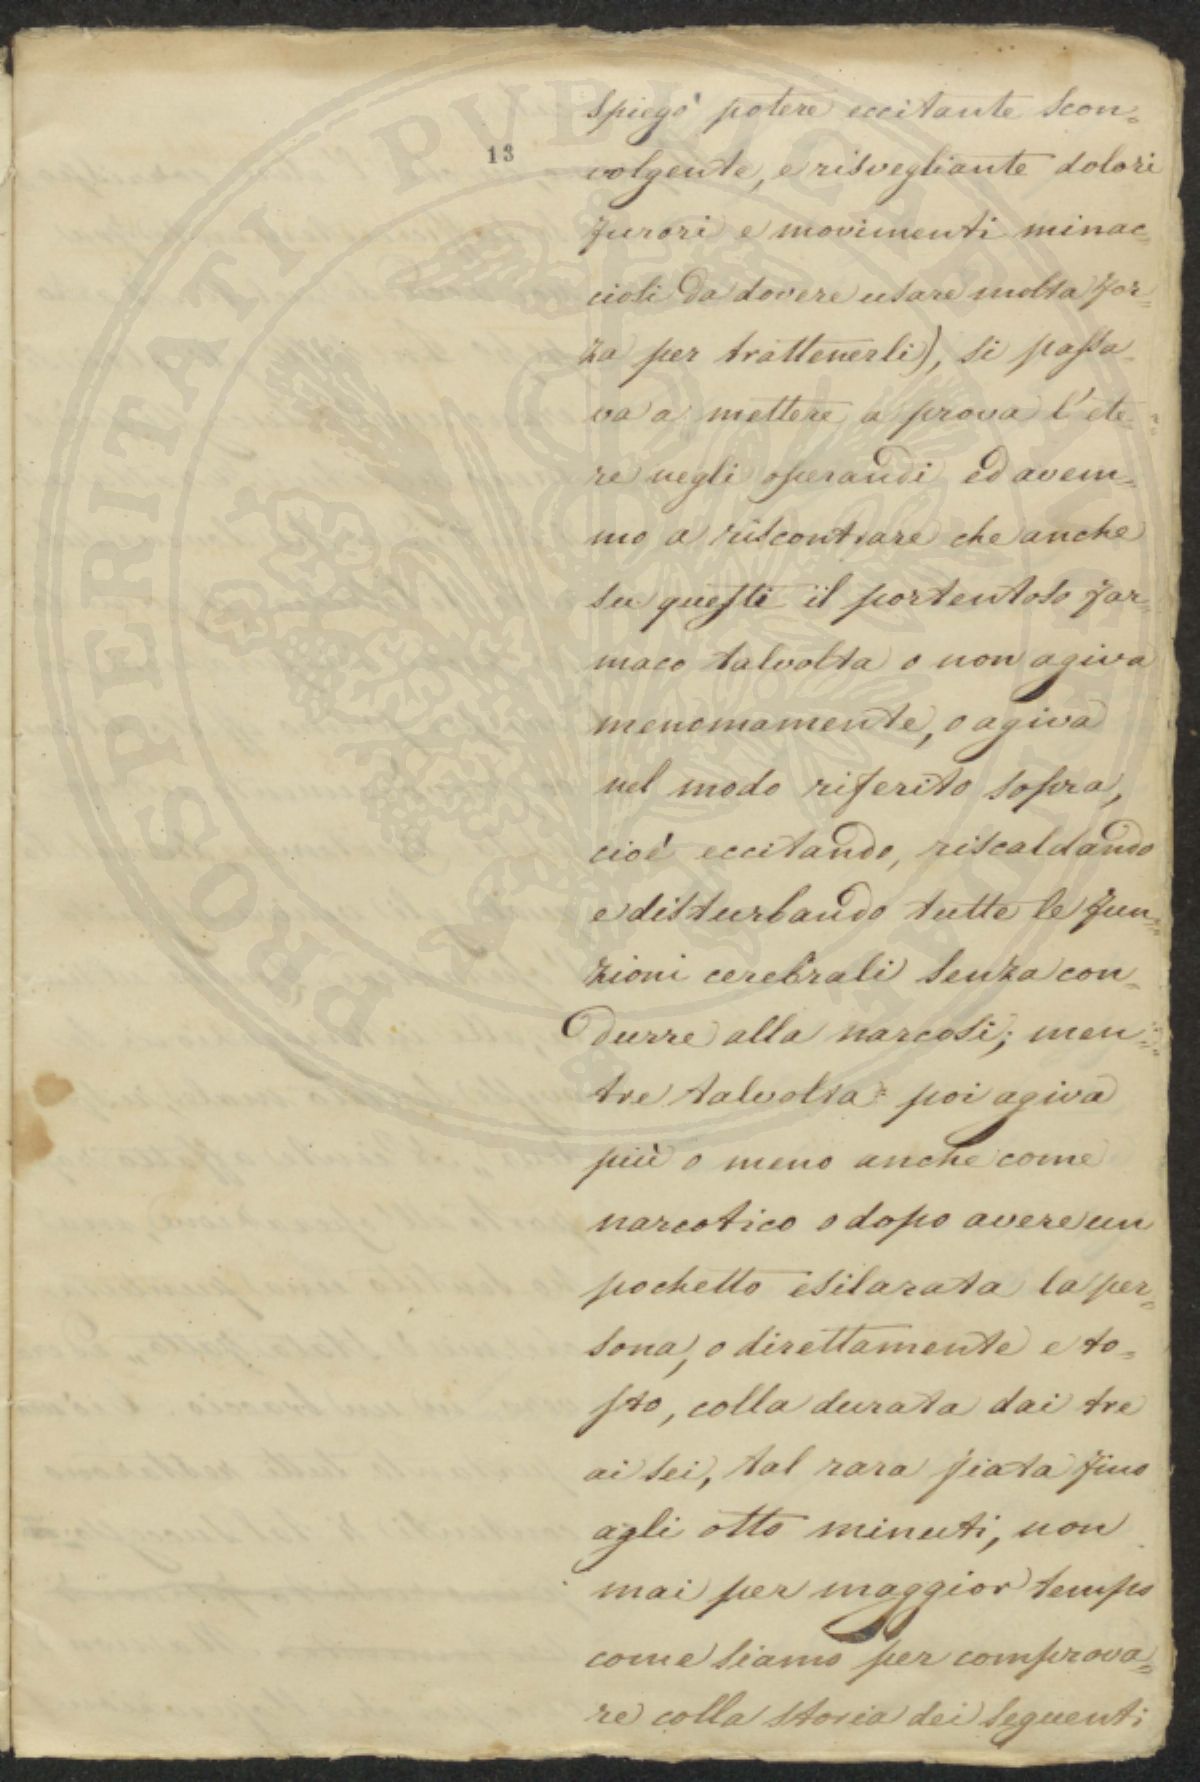 spiegò potere eccitante scon=
13
volgente, e risvegliante dolori
furori e movimenti minac=
cioli da dovere usare molta for=
za per trattenerli), si passa=
va a mettere a prova l'ete=
re negli operandi ed avem=
mo a riscontrare che anche
su questi il portentoso far=
maco talvolta o non agiva
menomamente, o agiva
nel modo riferito sopra,
cioè eccitando, riscaldando
e disturbando tutte le fun=
zioni cerebrali senza con=
durre alla narcosi; men=
tre talvolta poi agiva
più o meno anche come
narcotico o dopo avere un
pochetto esilarata la per=
sona, o direttamente e to=
sto, colla durata dai tre
ai sei, tal rara fiata fino
agli otto minuti, non
mai per maggior tempo
come siamo per comprova=
re colla storia dei seguenti
PROSPERITATI PVBLICAE